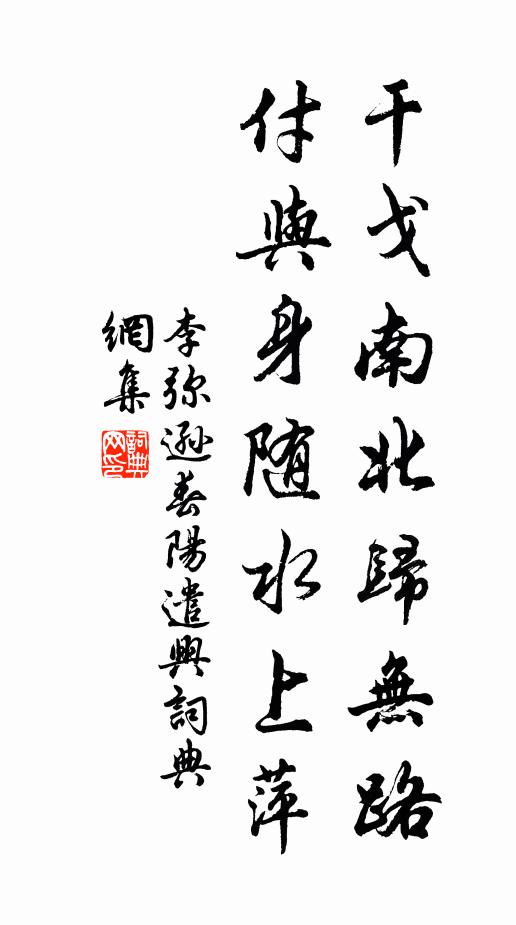 干戈南北歸無路
付與身随水上萍
李弥遜春陽遣興詞典
網集
詞典網印